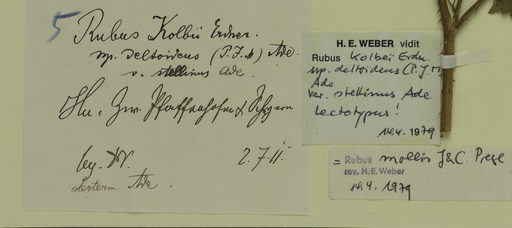 5
Rubus Kolbii Erdner.
ssp. deltoideus (P.J.M) Ade.
v. stellinus Ade.
Zw. Pfaffenhofen &
leg. 2.7.11.
determ Ade.
H. E. WEBER vidit
Rubus Kolbei Erdn.
ssp. deltoideus (P.J.M)
Ade
var. stellinus Ade
Lectotypus!
14.4. 1979
= Rubus mollis J&C. Presl
rev. H. E. Weber
14.4. 1979